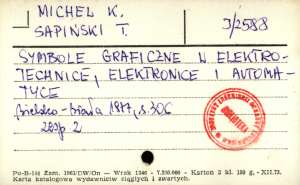 MICHEL K.
SAPIŃSKI T.
J/2588
SYMBOLE GRAFICZNE W ELEKTRO-
TECHNICE, ELEKTRONICE I AUTOMA-
TYCE
Bielsko-Biała 1977, s. 306
2egz 2
Pu-B-104 Zam. 1963/DW/On — Wrak 1346 - 7.200.000 - Karton 3 kl. 180 g. - XII.73.
Karta katalogowa wydawnictw ciągłych i zwartych.